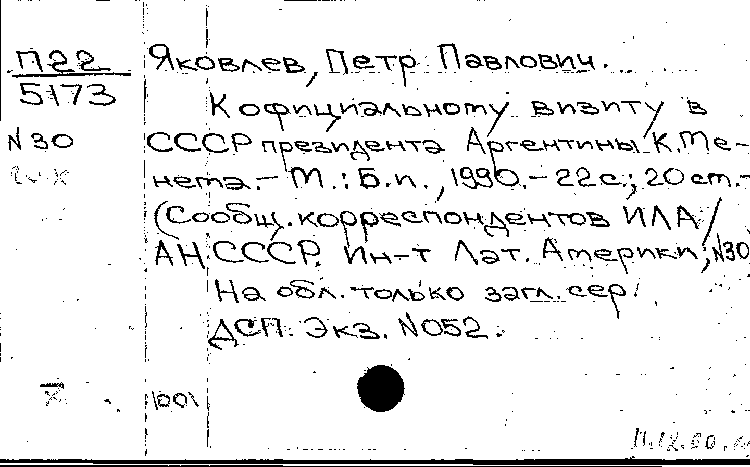 П22 Яковлев, Петр Павлович.
5173
К официальному визиту в
N30 СССР президента Аргентины К. Ме-
нема. – М.: Б.и., 1990. – 22 с.; 20 см. –
(Сообщ. корреспондентов ИЛА /
АН СССР. Ин-т Лат. Америки; N30
На обл. только загл. сер.
ДСП. Экз. N052.